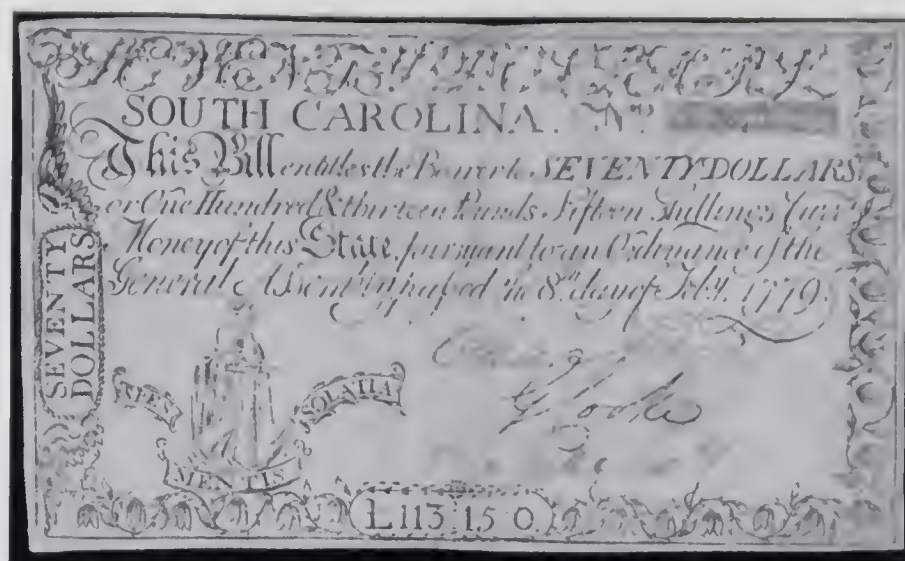 SOUTH CAROLINA. No.
This Bill entitles the Bearer to SEVENTY DOLLARS
or One Hundred & thirteen Pounds Fifteen Shillings Curr.t
Money of this State, pursuant to an Ordinance of the
General Assembly passed the 8th day of Feby. 1779.
SEVENTY
DOLLARS
SPES
SOLATIA
MENTIS
L113 15 0